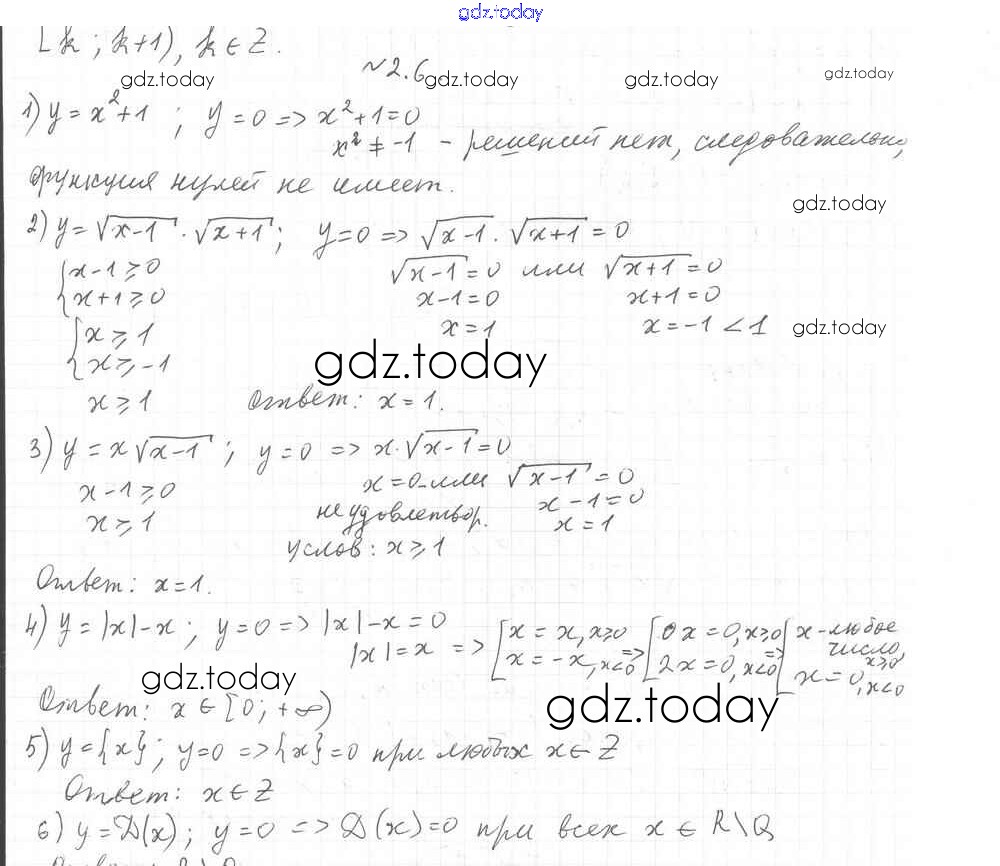 gdz.today
[k; k+1), k ∈ Z.
№2.6
gdz.today gdz.today gdz.today gdz.today
1) y = x²+1 ; y = 0 => x²+1=0
x² ≠ -1 - решений нет, следовательно,
функция нулей не имеет.
gdz.today
2) y = √x-1 · √x+1 ; y=0 => √x-1 · √x+1 = 0
{x-1 ≥ 0 √x-1 = 0 или √x+1 = 0
{x+1 ≥ 0 x-1=0 x+1=0
{x ≥ 1 x=1 x=-1 < 1 gdz.today
{x ≥ -1 gdz.today
x ≥ 1 Ответ: x=1.
3) y = x√x-1 ; y=0 => x·√x-1 = 0
x-1 ≥ 0 x=0 или √x-1 = 0
x ≥ 1 не удовлетвор. x-1=0
x=1
услов: x ≥ 1
Ответ: x=1.
4) y = |x|-x ; y=0 => |x|-x=0
|x|=x => [x=x, x≥0 => [0x=0, x≥0 => [x-любое число, x≥0
[x=-x, x<0 [2x=0, x<0 [x=0, x<0
gdz.today gdz.today
Ответ: x ∈ [0; +∞)
5) y={x}; y=0 => {x}=0 при любых x ∈ Z
Ответ: x ∈ Z
6) y = D(x); y=0 => D(x)=0 при всех x ∈ R\Q